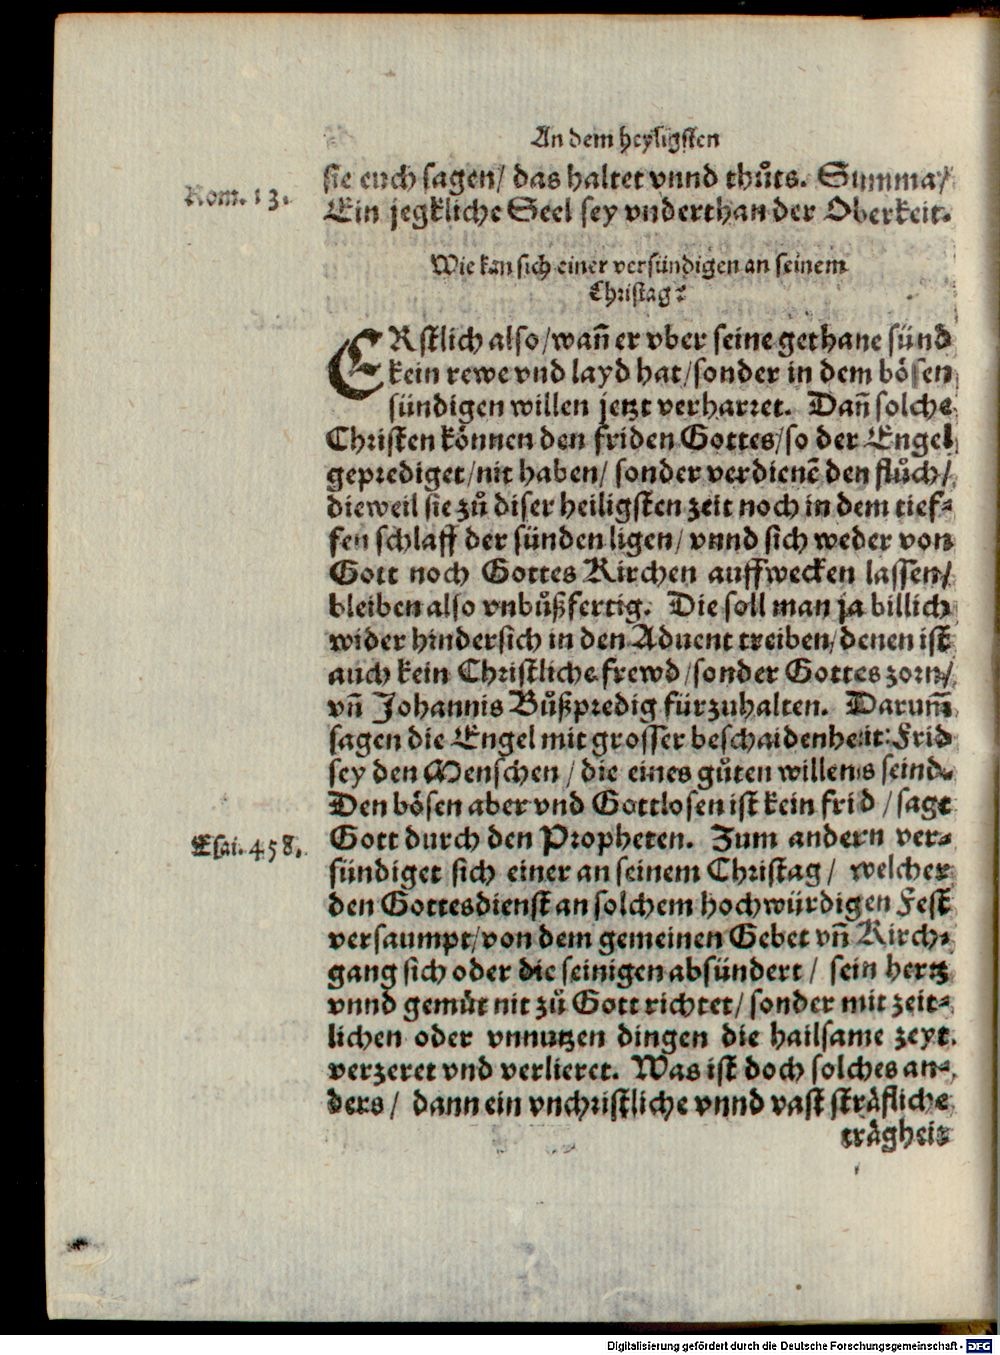 An dem heyligsten
sie euch sagen/ das haltet vnnd thůts. Summa/
Rom. 13.
Ein jegkliche Seel sey vnderthan der Oberkeit.
Wie kan sich einer versündigen an seinem
Christag?
ERstlich also/wañ er vber seine gethane sünd
kein rewe vnd layd hat/sonder in dem bösen
sündigen willen jetzt verharret. Dañ solche
Christen können den friden Gottes/so der Engel
geprediget/nit haben/ sonder verdienẽ den flůch/
dieweil sie zů diser heiligsten zeit noch in dem tief-
fen schlaff der sünden ligen/ vnnd sich weder von
Gott noch Gottes Kirchen auffwecken lassen/
bleiben also vnbůßfertig. Die soll man ja billich
wider hindersich in den Aduent treiben/denen ist
auch kein Christliche frewd/sonder Gottes zorn/
vñ Johannis Bůßpredig fürzuhalten. Darum̃
sagen die Engel mit grosser beschaidenheit: Frid
sey den Menschen/ die eines gůten willens seind.
Den bösen aber vnd Gottlosen ist kein frid/ sagt
Esai. 458.
Gott durch den Propheten. Zum andern ver-
sündiget sich einer an seinem Christag/ welcher
den Gottesdienst an solchem hochwürdigen Fest
versaumpt/von dem gemeinen Gebet vñ Kirch-
gang sich oder die seinigen absündert/ sein hertz
vnnd gemůt nit zů Gott richtet/ sonder mit zeit-
lichen oder vnnutzen dingen die hailsame zeyt
verzeret vnd verlieret. Was ist doch solches an-
ders/ dann ein vnchristliche vnnd vast sträfliche
trägheit
Digitalisierung gefördert durch die Deutsche Forschungsgemeinschaft - DFG